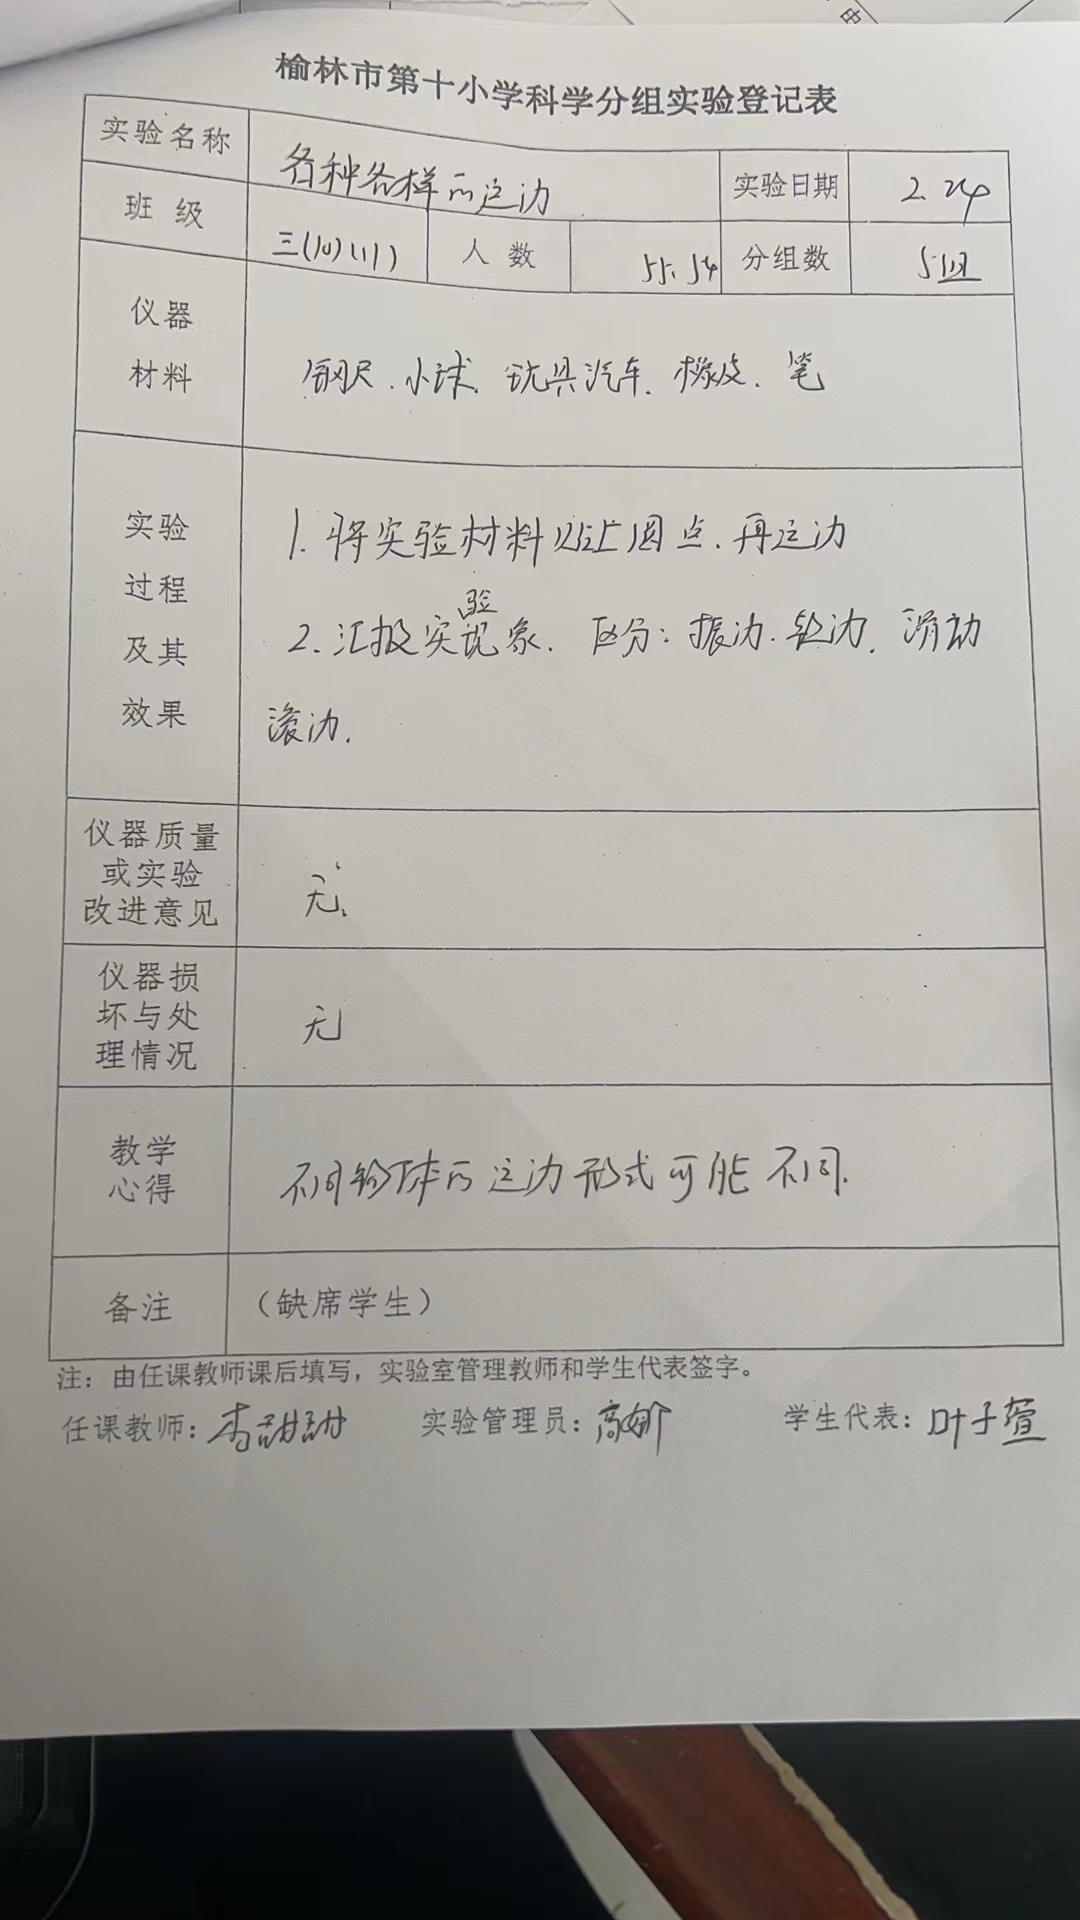 榆林市第十小学科学分组实验登记表
实验名称 各种各样的运动 实验日期 2.24
班级 三(10)(11) 人数 55.54 分组数 5组
仪器材料 钢尺.小球.玩具汽车.橡皮.笔
实验过程及其效果
1.将实验材料贴上圆点.再运动
2.汇报实验现象. 区分:振动. 动. 滑动
滚动.
仪器质量或实验改进意见 无.
仪器损坏与处理情况 无
教学心得 不同物体的运动形式可能不同.
备注 (缺席学生)
注:由任课教师课后填写,实验室管理教师和学生代表签字。
任课教师:李甜甜 实验管理员:高娇 学生代表:叶子萱